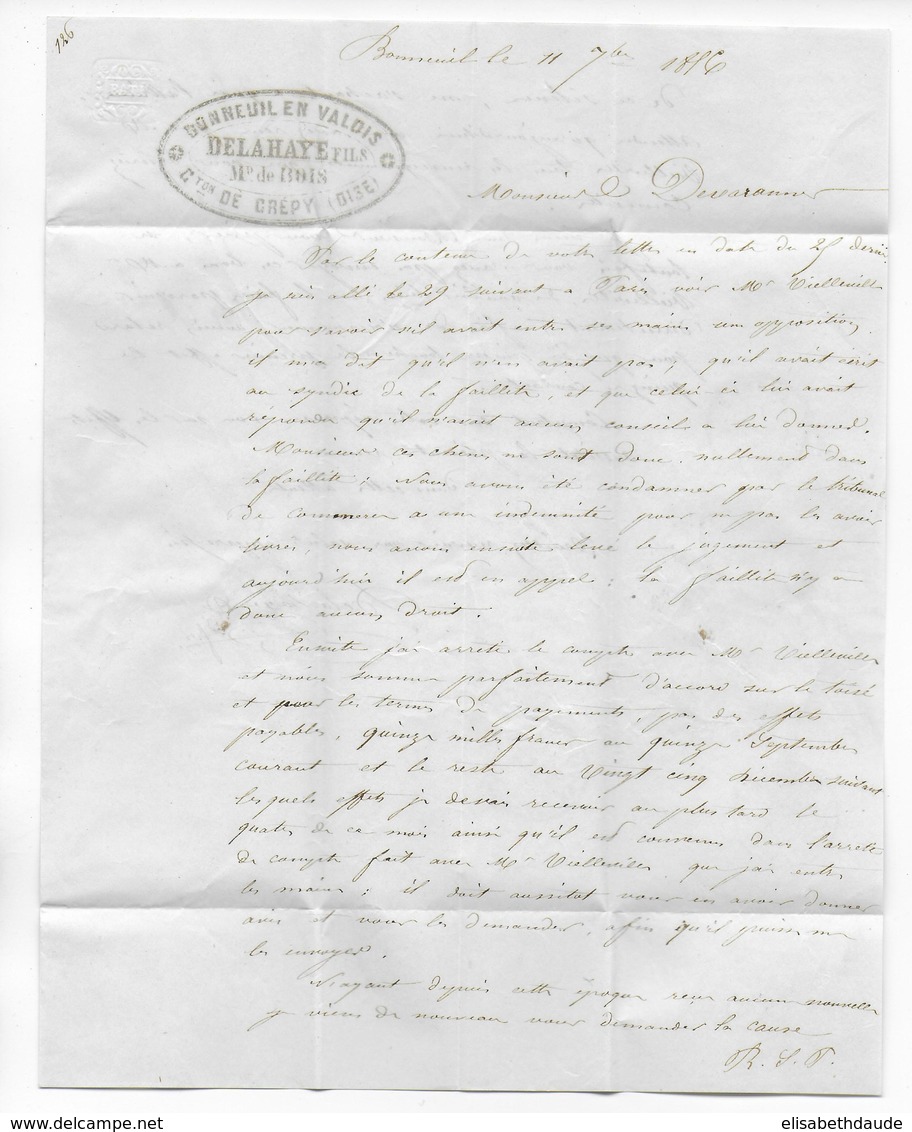 126
Bonneuil le 11 7bre 1856
BONNEUIL EN VALOIS
DELAHAYE FILS
Md de BOIS
Cton DE CRÉPY (OISE)
Monsieur
Par le contenu de votre lettre en date du 25 dernier
je suis allé le 29 suivant a Paris voir Mr Vielleville
pour savoir s'il avait entre ses mains une opposition,
il m'a dit qu'il n'en avait pas, qu'il avait écrit
au syndic de la faillite, et que celui ci lui avait
répondu qu'il n'avait aucun conseil a lui donner.
Monsieur ces chenes ne sont donc nullement dans
la faillite; Nous avons été condamner par le tribunal
de commerce a une indemnité pour ne pas les avoir
livrés, nous avons ensuite levé le jugement et
aujourd'hui il est en appel; la faillite n'y a
donc aucun droit.
Ensuite j'ai arrêté le compte avec Mr Vielleville
et nous somme parfaitement d'accord sur le toisé
et pour les termes de payements, par des effets
payables, quinze milles francs au quinze Septembre
courant et le reste au vingt cinq decembre suivant
lesquels effets je devais recevoir au plus tard le
quatre de ce mois ainsi qu'il est convenu dans l'arrêté
de compte fait avec Mr Vielleville que j'ai entre
les mains; il doit aussitot vous en avoir donner
avis et vous les demander, afin qu'il puisse me
les envoyer.
N'ayant depuis cette époque reçu aucune nouvelle
je viens de nouveau vous demander la cause
R. S. P.
elisabethdaude
www.delcampe.net